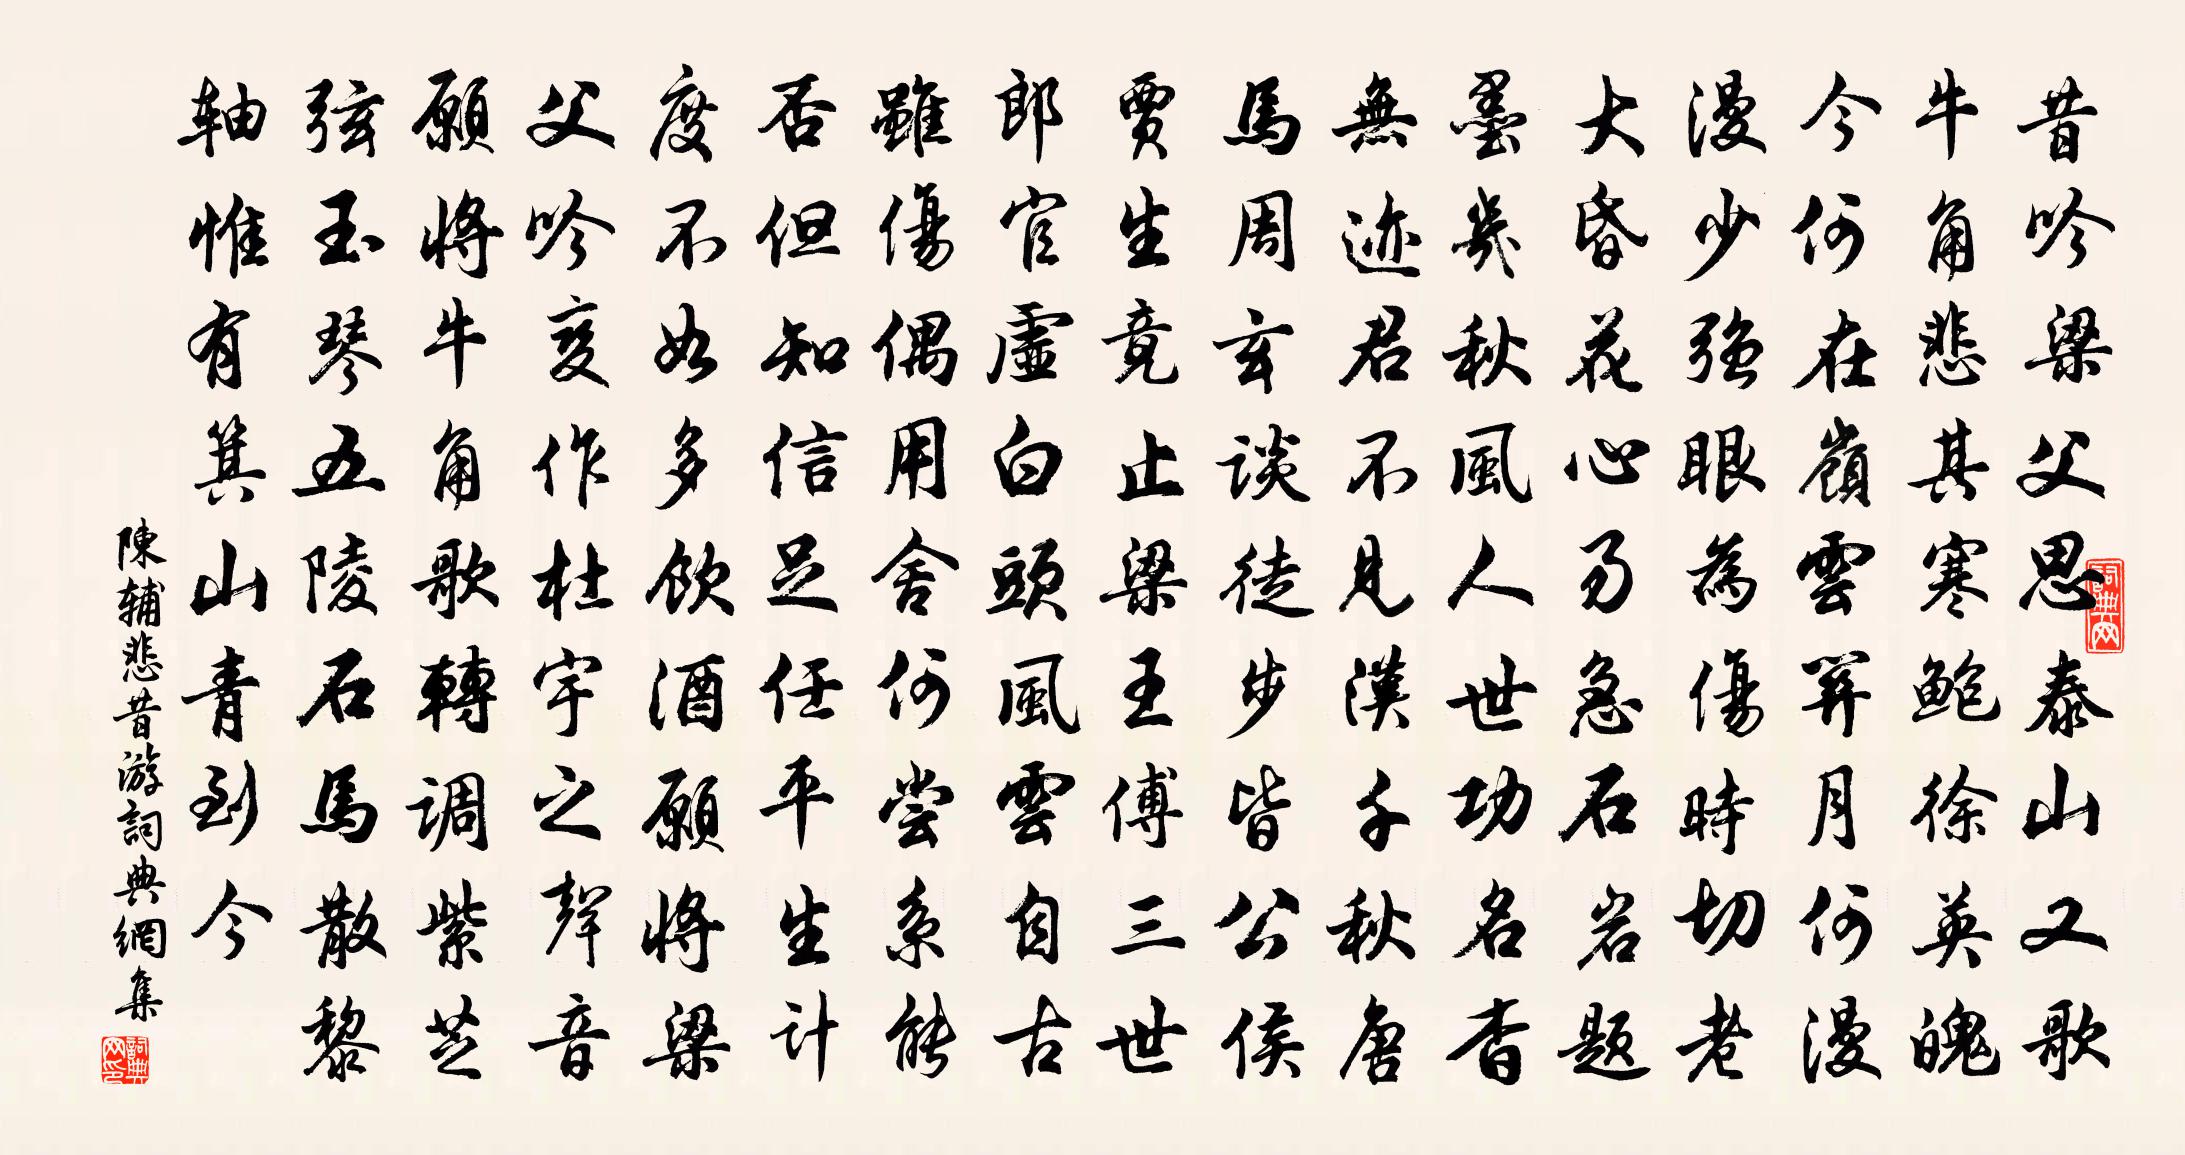 昔吟梁父思泰山又歌
牛角悲其寒鮑徐英魄
今何在嶺雲開月何漫
漫少強眼為傷時切老
大昏花心勿急石岩題
墨幾秋風人世功名杳
無迹君不見漢千秋唐
馬周玄談徒步皆公侯
賈生竟止梁王傅三世
郎官虛白頭風雲自古
雖傷偶用舍何嘗系能
否但知信足任平生計
度不如多飲酒願將梁
父吟變作杜宇之聲音
願將牛角歌轉調紫芝
弦玉琴五陵石馬散黎
軸惟有箕山青到今
陳輔悲昔游詞典網集
詞典网
詞典网印